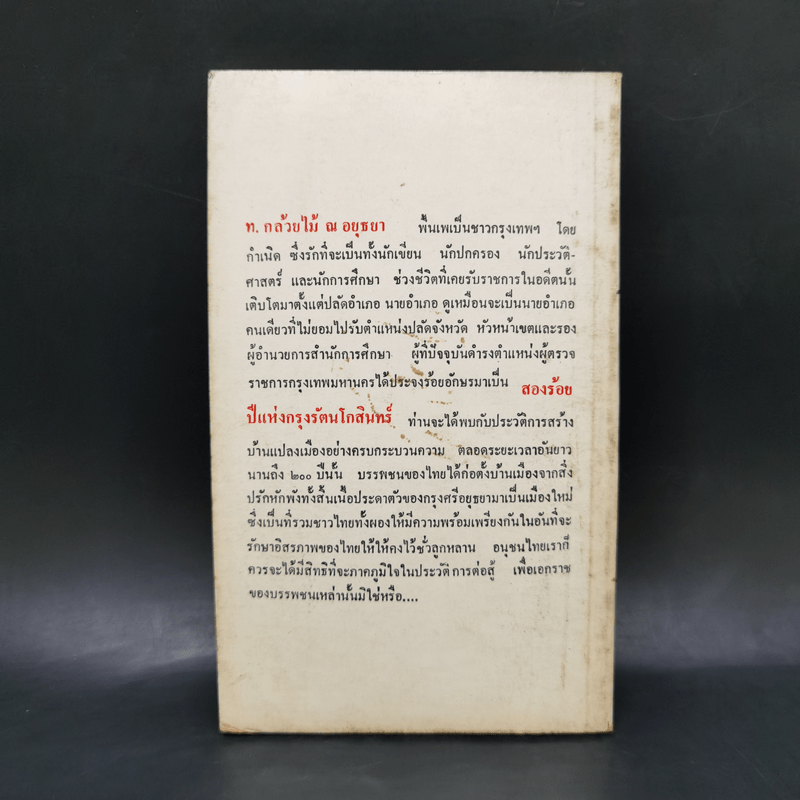 ท. กล้วยไม้ ณ อยุธยา พื้นเพเป็นชาวกรุงเทพฯ โดย
กำเนิด ซึ่งรักที่จะเป็นทั้งนักเขียน นักปกครอง นักประวัติ-
ศาสตร์ และนักการศึกษา ช่วงชีวิตที่เคยรับราชการในอดีตนั้น
เติบโตมาตั้งแต่ปลัดอำเภอ นายอำเภอ ดูเหมือนจะเป็นนายอำเภอ
คนเดียวที่ไม่ยอมไปรับตำแหน่งปลัดจังหวัด หัวหน้าเขตและรอง
ผู้อำนวยการสำนักการศึกษา ผู้ที่ปัจจุบันดำรงตำแหน่งผู้ตรวจ
ราชการกรุงเทพมหานครได้ประจงร้อยอักษรมาเป็น สองร้อย
ปีแห่งกรุงรัตนโกสินทร์ ท่านจะได้พบกับประวัติการสร้าง
บ้านแปลงเมืองอย่างครบกระบวนความ ตลอดระยะเวลาอันยาว
นานถึง ๒๐๐ ปีนั้น บรรพชนของไทยได้ก่อตั้งบ้านเมืองจากสิ่ง
ปรักหักพังทั้งสิ้นเนื้อประดาตัวของกรุงศรีอยุธยามาเป็นเมืองใหม่
ซึ่งเป็นที่รวมชาวไทยทั้งผองให้มีความพร้อมเพรียงกันในอันที่จะ
รักษาอิสรภาพของไทยให้ให้คงไว้ชั่วลูกหลาน อนุชนไทยเราก็
ควรจะได้มีสิทธิที่จะภาคภูมิใจในประวัติการต่อสู้ เพื่อเอกราช
ของบรรพชนเหล่านั้นมิใช่หรือ....